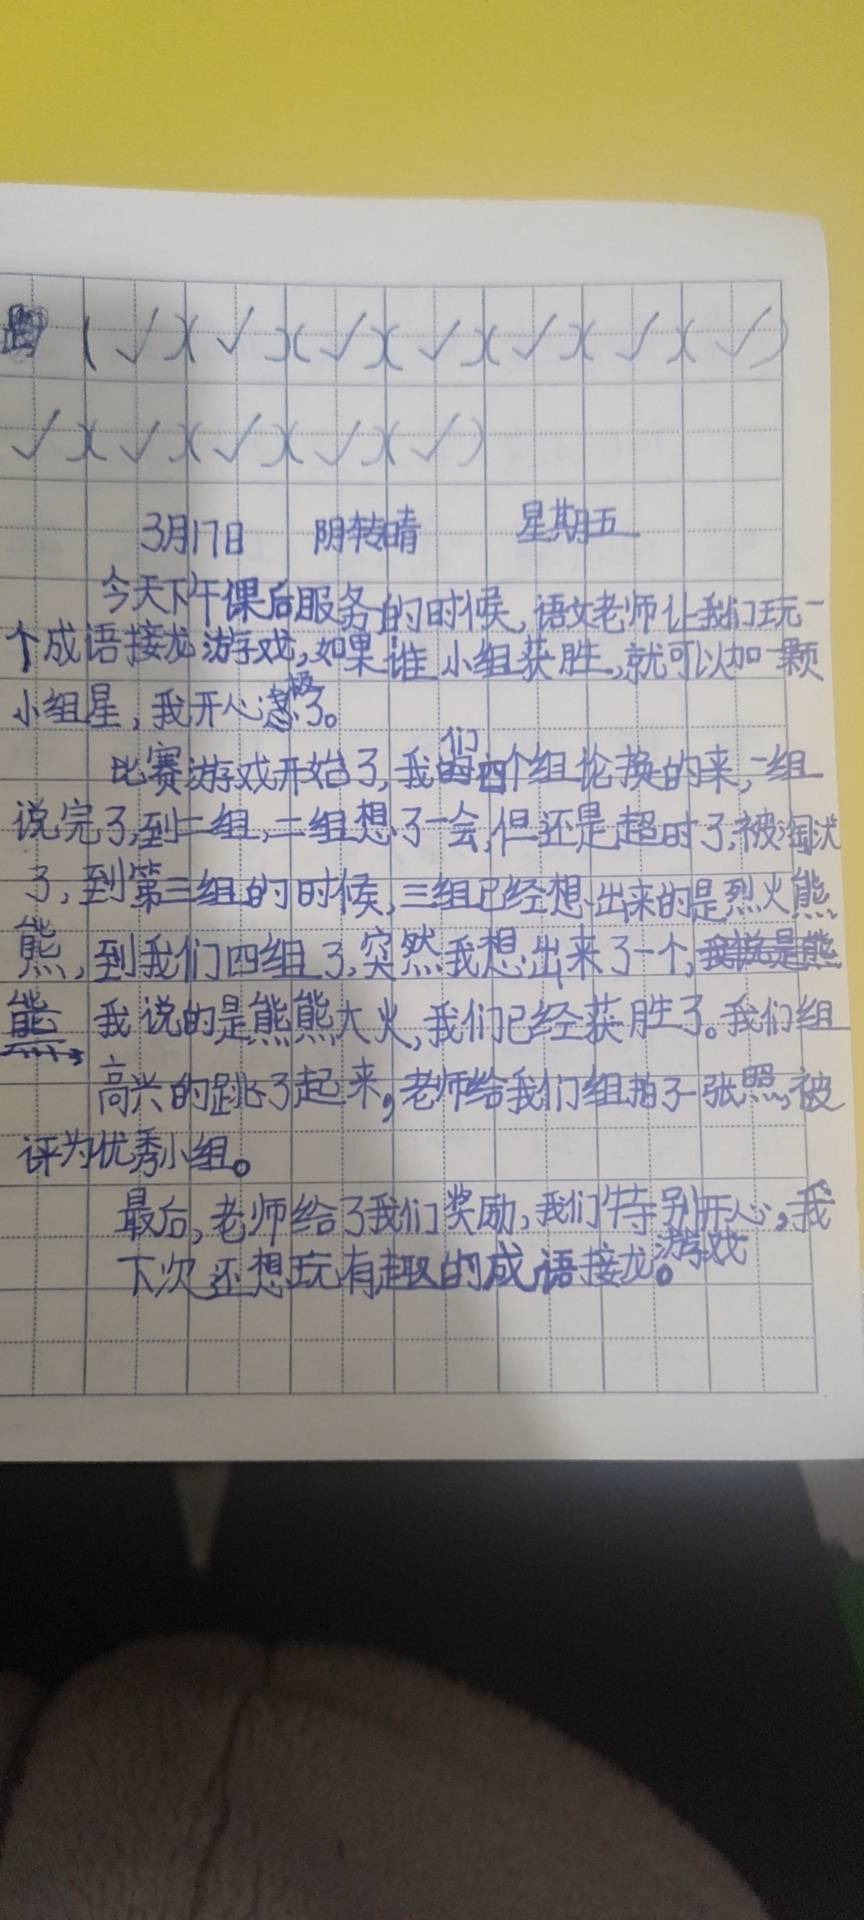 (✓)(✓)(✓)(✓)(✓)(✓)(✓)
✓)(✓)(✓)(✓)(✓)
3月17日 阴转晴 星期五
今天下午课后服务的时候,语文老师让我们玩一
个成语接龙游戏,如果谁小组获胜,就可以加一颗
小组星,我开心极了。
比赛游戏开始了,我们四个组抡换的来,一组
说完了,到二组,二组想了一会,但还是超时了,被淘汰
了,到第三组的时候,三组已经想出来的是烈火熊
熊,到我们四组了,突然我想出来了一个,
我说的是熊熊大火,我们已经获胜了。我们组
高兴的跳了起来,老师给我们组拍了一张照,被
评为优秀小组。
最后,老师给了我们奖励,我们特别开心,我
下次还想玩有趣的成语接龙游戏。